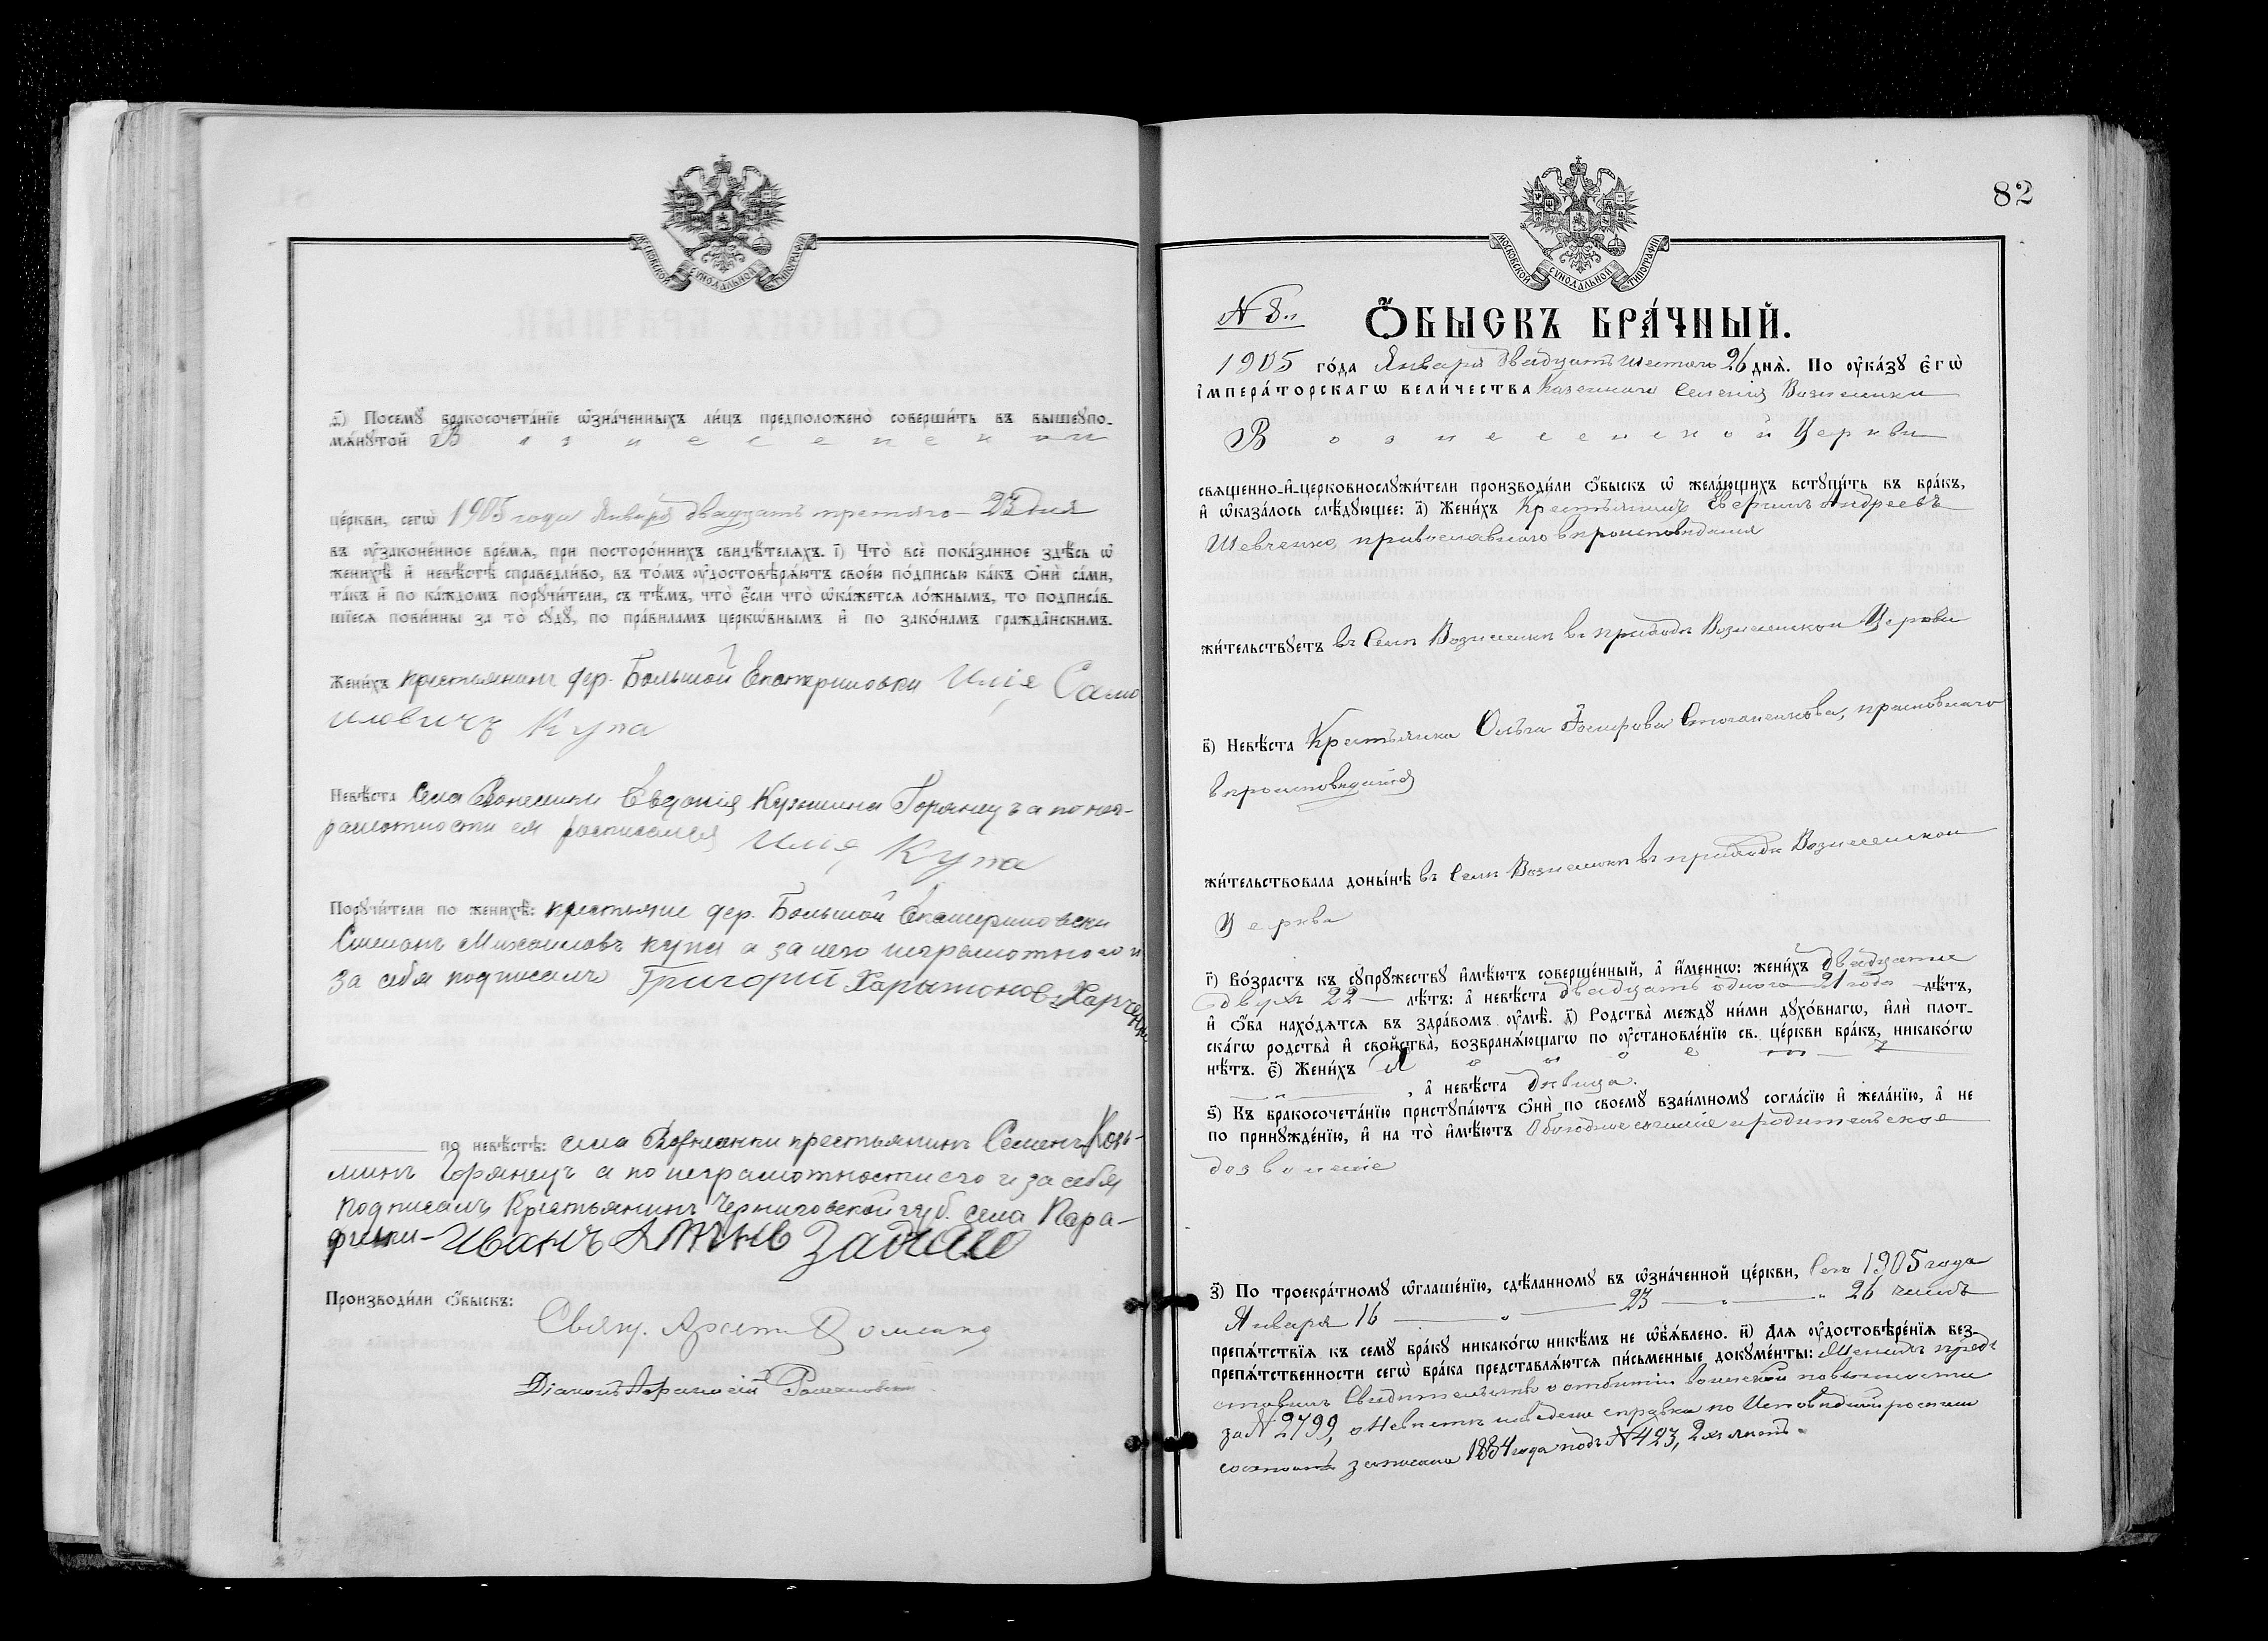 МОСКОВСКОЙ СУНОДАЛЬНОЙ ТИПОГРАФІИ
д҃) Посемꙋ̀ бракосочета́нїе ѡ҆зна́ченныхъ ли́цъ предположено̀ соверши́ть въ вышеꙋпо-
мѧ́нꙋтой Вознесенской
це́ркви, сегѡ̀ 1905 года Января двадцать третяго – 23 дня
въ ᲂу҆законе́нное вре́мѧ, при посторо́ннихъ свидѣ́телѧхъ. і҃) Что̀ всѐ пока́занное здѣ́сь ѡ҆
женихѣ̀ и҆ невѣ́стѣ справедли́во, въ то́мъ ᲂу҆достовѣрѧ́ютъ свое́ю по́дписью ка́къ ѻ҆нѝ са́ми,
та́къ и҆ по ка́ждомъ порꙋчи́тели, съ тѣ́мъ, что̀ є҆́сли что̀ ѡ҆ка́жетсѧ ло́жнымъ, то подписа́в-
шїесѧ пови́нны за то̀ сꙋдꙋ̀, по пра́виламъ церкѡ́внымъ и҆ по зако́намъ гражда̑нскимъ.
Жени́хъ крестьянинъ дер. Большой Екатериновки Илія Само
иловичъ Купа
Невѣ́ста села Вознесенки Евдокія Кузьмина Горянецъ а по нег-
рамотности ея росписался Илія Купа
Порꙋчи́тели по женихѣ̀: крестьяне дер. Большой Екатериновски
Стефанъ Михайловъ Купа а за него неграмотного и
за себя подписалъ Григорій Харитоновъ Харченко
по невѣ́стѣ: села Вознесенки крестьянинъ Семенъ Козь-
минъ Горянецъ а по неграмотности его и за себя
подписалъ Крестьянинъ Черниговской губ. села Пара-
фиевки – Иванъ
Производи́ли ѻ҆́быскъ:
Свящ.
Діаконъ Афанасій Романовскій
82
МОСКОВСКОЙ СУНОДАЛЬНОЙ ТИПОГРАФІИ
N 8.
Ѻ҆́БЫСКЪ БРА́ЧНЫЙ.
1905 го́да Января двадцать шестаго 26 днѧ̀. По ᲂу҆ка́зꙋ є҆гѡ̀
і҆мпера́торскагѡ вели́чества Казеннаго Селенія Вознесенки
Вознесенской Церкви
свѧще́нно-и҆-церковнослꙋжи́тели производи́ли ѻ҆́быскъ ѡ҆ жела́ющихъ встꙋпи́ть въ бра́къ,
и҆ ѡ҆каза́лось слѣ́дꙋющее: а҃) Жени́хъ Крестьянинъ Андреевъ
Шевченко, православнаго вѣроисповѣданія
жи́тельствꙋетъ въ Селѣ Вознесенкѣ въ приходѣ Вознесенской Церкви
в҃) Невѣ́ста Крестьянка Ольга Іосифова православнаго
вѣроисповѣданія
жи́тельствовала доны́нѣ въ Селѣ Вознесенкѣ въ приходѣ Вознесенской
Церкви
г҃) Во́зрастъ къ сꙋпрꙋ́жествꙋ и҆мѣ́ютъ соверше́нный, а҆ и҆́меннѡ: жени́хъ двадцати
двухъ 22 – лѣ́тъ: а҆ невѣ́ста двадцать одного 21 года лѣ́тъ,
и҆ ѻ҆́ба нахо́дѧтсѧ въ здра́вомъ ᲂу҆мѣ̀. д҃) Родства̀ междꙋ̀ ни́ми дꙋхо́внагѡ, и҆лѝ плот-
ска́гѡ родства̀ и҆ свойства̀, возбранѧ́ющагѡ по ᲂу҆становле́нїю св. це́ркви бра́къ, никако́гѡ
нѣ́тъ. є҃) Жени́хъ Холостъ
, а҆ невѣ́ста дѣвица.
ѕ҃) Къ бракосочета́нїю пристꙋпа́ютъ ѻ҆нѝ по своемꙋ̀ взаи́мномꙋ согла́сїю и҆ жела́нїю, а҆ не
по принꙋжде́нїю, и҆ на то̀ и҆мѣ́ютъ обоюдное согласіе и родительское
дозволеніе
з҃) По троекра́тномꙋ ѡ҆глаше́нїю, сдѣ́ланномꙋ въ ѡ҆зна́ченной це́ркви, Сего 1905 года
Января 16 — 23 — 26 числъ
препѧ́тствїѧ къ семꙋ̀ бра́кꙋ никако́гѡ никѣ́мъ не ѡ҆б̾ѧ́влено. и҃) Длѧ ᲂу҆достовѣре́нїѧ без-
препѧ́тственности сегѡ̀ бра́ка представлѧ́ютсѧ пи́сьменные докꙋме́нты: Женихъ пред-
ставилъ Свидѣтельство о отбытіи воинской повинности
за N 2799, о Невѣстѣ наведена справка по Исповѣдной росписи
записана 1884 года подъ N 423, 2хъ лѣтъ.